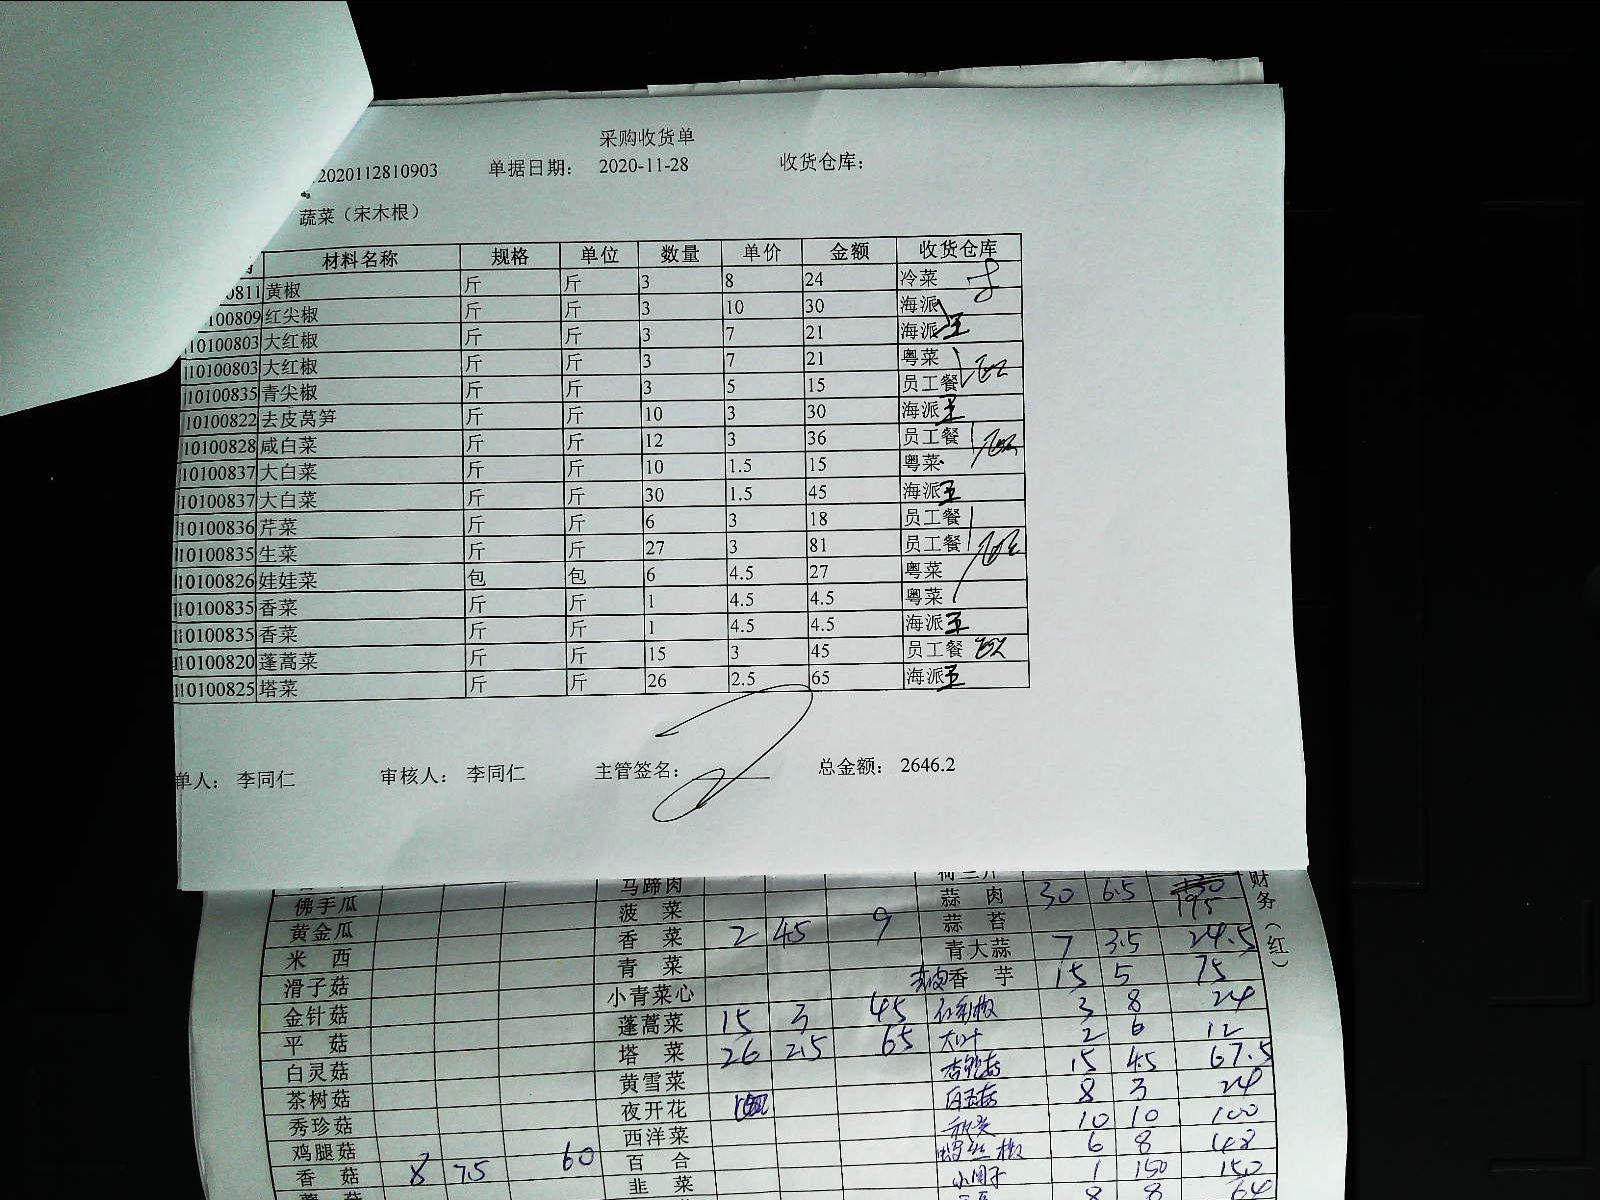 采购收货单
2020112810903 单据日期： 2020-11-28 收货仓库：
蔬菜（宋木根）
材料名称 规格 单位 数量 单价 金额 收货仓库
0811 黄椒 斤 斤 3 8 24 冷菜
100809 红尖椒 斤 斤 3 10 30 海派
10100803 大红椒 斤 斤 3 7 21 海派 王
10100803 大红椒 斤 斤 3 7 21 粤菜
10100835 青尖椒 斤 斤 3 5 15 员工餐
10100822 去皮莴笋 斤 斤 10 3 30 海派 王
10100828 咸白菜 斤 斤 12 3 36 员工餐
10100837 大白菜 斤 斤 10 1.5 15 粤菜
10100837 大白菜 斤 斤 30 1.5 45 海派 王
10100836 芹菜 斤 斤 6 3 18 员工餐
10100835 生菜 斤 斤 27 3 81 员工餐
10100826 娃娃菜 包 包 6 4.5 27 粤菜
10100835 香菜 斤 斤 1 4.5 4.5 粤菜
10100835 香菜 斤 斤 1 4.5 4.5 海派 王
10100820 蓬蒿菜 斤 斤 15 3 45 员工餐
10100825 塔菜 斤 斤 26 2.5 65 海派 王
单人： 李同仁 审核人： 李同仁 主管签名： 总金额： 2646.2
马蹄肉
佛手瓜 菠菜 蒜肉 30 6.5 195
黄金瓜 香菜 2 4.5 9 蒜苔
米西 青菜 青大蒜 7 3.5 24.5
滑子菇 小青菜心 去皮香芋 15 5 75
金针菇 蓬蒿菜 15 3 45 3 8 24
平菇 塔菜 26 2.5 65 大叶 2 6 12
白灵菇 黄雪菜 杏鲍菇 15 4.5 67.5
茶树菇 夜开花 白玉菇 8 3 24
秀珍菇 西洋菜 10 10 100
鸡腿菇 百合 螺丝椒 6 8 48
香菇 8 7.5 60 韭菜 1 150 150
8 8 64
财务（红）